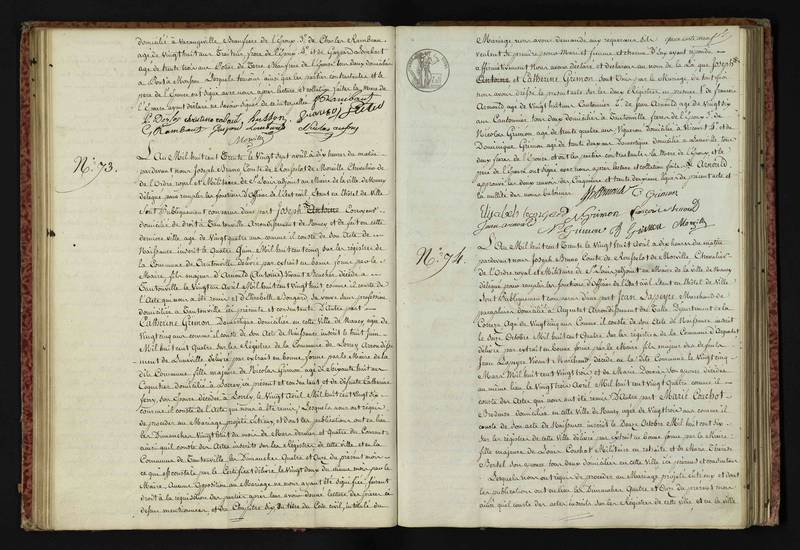 domicilié à Varangeville, Beaufrere de l'Epoux, Sr. de Charles Rambeau
age de Vingt huit ans Traiteur, frere de l'Epouse, Sr. et Gaspard
age de trente trois ans Potier de Terre Beaufrere de l'Epouse tous deux domiciliés
à Pont à Mousson. Lesquels temoins ainsi que les parties contractantes et le
pere de l'Epoux ont signé avec nous après lecture et collation faites, la Mere de
l'Epoux ayant déclaré ne savoir signer de ce interpellée
Husson
C. Rambaut
Nicolas
Moritz
No. 73.
L'An Mil huit cent Trente le Vingt Sept avril à dix heures du matin
pardevant nous Joseph Bruno Comte de Chevalier de
de l'Ordre royal et Militaire de St Louis adjoint au Maire de la ville de Nancy
délégué pour remplir les fonctions d'Officier de l'état civil, étant en l'hôtel de Ville
Sont Publiquement comparus d'une part Joseph Antoine
domicilié de droit à Tantonville Arrondissement de Nancy et de fait en cette
derniere ville age de Vingt quatre ans comme il conste de son Acte de
Naissance inscrit le Quatre Juin Mil huit cent cinq sur les régistres de
la Commune de Tantonville délivré par extrait en bonne forme par le
Maire, fils majeur d'Arnould Antoine Vivant décédé à
Tantonville le Vingt Avril Mil huit cent Vingt huit comme il conste de
l'Acte qui nous a été remis et d'Elisabeth Bongard sa veuve sans profession
domiciliée à Tantonville ici présente et consentante D'Autre part
Catherine Grinon Domestique domiciliée en cette Ville de Nancy age de
Vingt cinq ans comme il conste de son Acte de Naissance inscrit le huit
Mil huit cent Quatre Sur les Régistres de la Commune de Lorey Arrondisse-
ment de Lunéville délivré par extrait en bonne forme par le Maire de la
dite Commune, fille majeure de Nicolas Grinon age de Soixante huit ans
Coquetier domicilié à Lorey, ici présent et consentant et de défunte Catherine
Jeny, son Epouse décédée à Lorey le Vingt Avril Mil huit cent Vingt six
comme il conste de l'Acte qui nous a été remis; Lesquels nous ont requis
de procéder au Mariage projeté entr'eux, et dont les publications ont eu lieu
les Dimanches Vingt huit du mois de Mars dernier et Quatre du Courant
ainsi qu'il conste des Actes inscrits sur les Régistres de cette ville et en la
Commune de Tantonville les Dimanches Quatre et Onze du présent mois
ce qui est constaté par le Certificat délivré le Vingt deux du même mois par le
Maire, Aucune Opposition au Mariage ne nous ayant été signifiée, faisant
droit à la requisition des parties après leur avoir donné lecture des pieces ci
dessus mentionnées, et du Chapitre six du titre du Code civil, intitulé du
Mariage nous avons demandé aux requerans s'ils
veulent se prendre pour Mari et femme et chacun d'eux ayant répondu
affirmativement Nous avons déclaré et déclarons au nom de la Loi que Joseph
Antoine et Catherine Grinon sont Unis par le Mariage, de tout quoi
nous avons dressé le présent acte sur les deux régistres en présence de Sr. francois
Arnould, age de Vingt huit ans Cantonnier, Sr. de Jean Arnould age de Vingt six
ans Cantonnier tous deux domiciliés à Tantonville, freres de l'Epoux, Sr. de
Nicolas Grinon, age de trente quatre ans Vigneron domicilié à Sr. et de
Dominique Grinon age de trente deux ans Domestique domicilié à Luneville tous
deux freres de l'Epouse et ont les parties contractantes la Mere de l'Epoux, et le
pere de l'Epouse signé avec nous après lecture et collation faite.
Arnould
C Grinon
Elisabeth bongard
Jean arnould
N Grinon
françois Arnoud
N Grinon
D Grinon
Moritz
No. 74.
L'An Mil huit cent Trente le Vingt huit Avril à dix heures du matin
pardevant nous Joseph Bruno Comte de Chevalier
de l'Ordre royal et Militaire de St Louis adjoint au Maire de la ville de Nancy
délégué pour remplir les fonctions d'Officier de l'état civil étant en l'hôtel de Ville
Sont Publiquement comparus d'une part Jean Lapeyre Marchand de
parapluies domicilié à Argentat Arrondissement de Tulle Département de la
Correze Age de Vingt cinq ans Comme il conste de son Acte de Naissance inscrit
le Onze Octobre Mil huit cent Quatre Sur les régistres de la Commune d'Argentat
délivré par extrait en bonne forme par le Maire, fils majeur des défunts
Jean Lapeyre Vivant Marchand décédé en la dite Commune le Vingt cinq
Mars Mil huit cent Vingt trois et de Marie son Epouse décédée
au même lieu le Vingt trois Avril Mil huit cent Vingt Quatre comme il
conste des Actes qui nous ont été remis D'Autre part Marie Cochot
Brodeuse domiciliée en cette Ville de Nancy agée de Vingt trois ans comme il
conste de son acte de Naissance inscrit le Douze Octobre Mil huit cent six
Sur les régistres de cette Ville délivré par extrait en bonne forme par le Maire,
fille majeure de Cochot Militaire en retraite et de Marie Therese
son Epouse tous deux domiciliés en cette Ville ici présens et consentans
Lesquels nous ont requis de procéder au Mariage projeté entr'eux et dont
les publications ont eu lieu les Dimanches Quatre et Onze du présent mois
ainsi qu'il conste des actes inscrits sur les Régistres de cette ville et en la ville